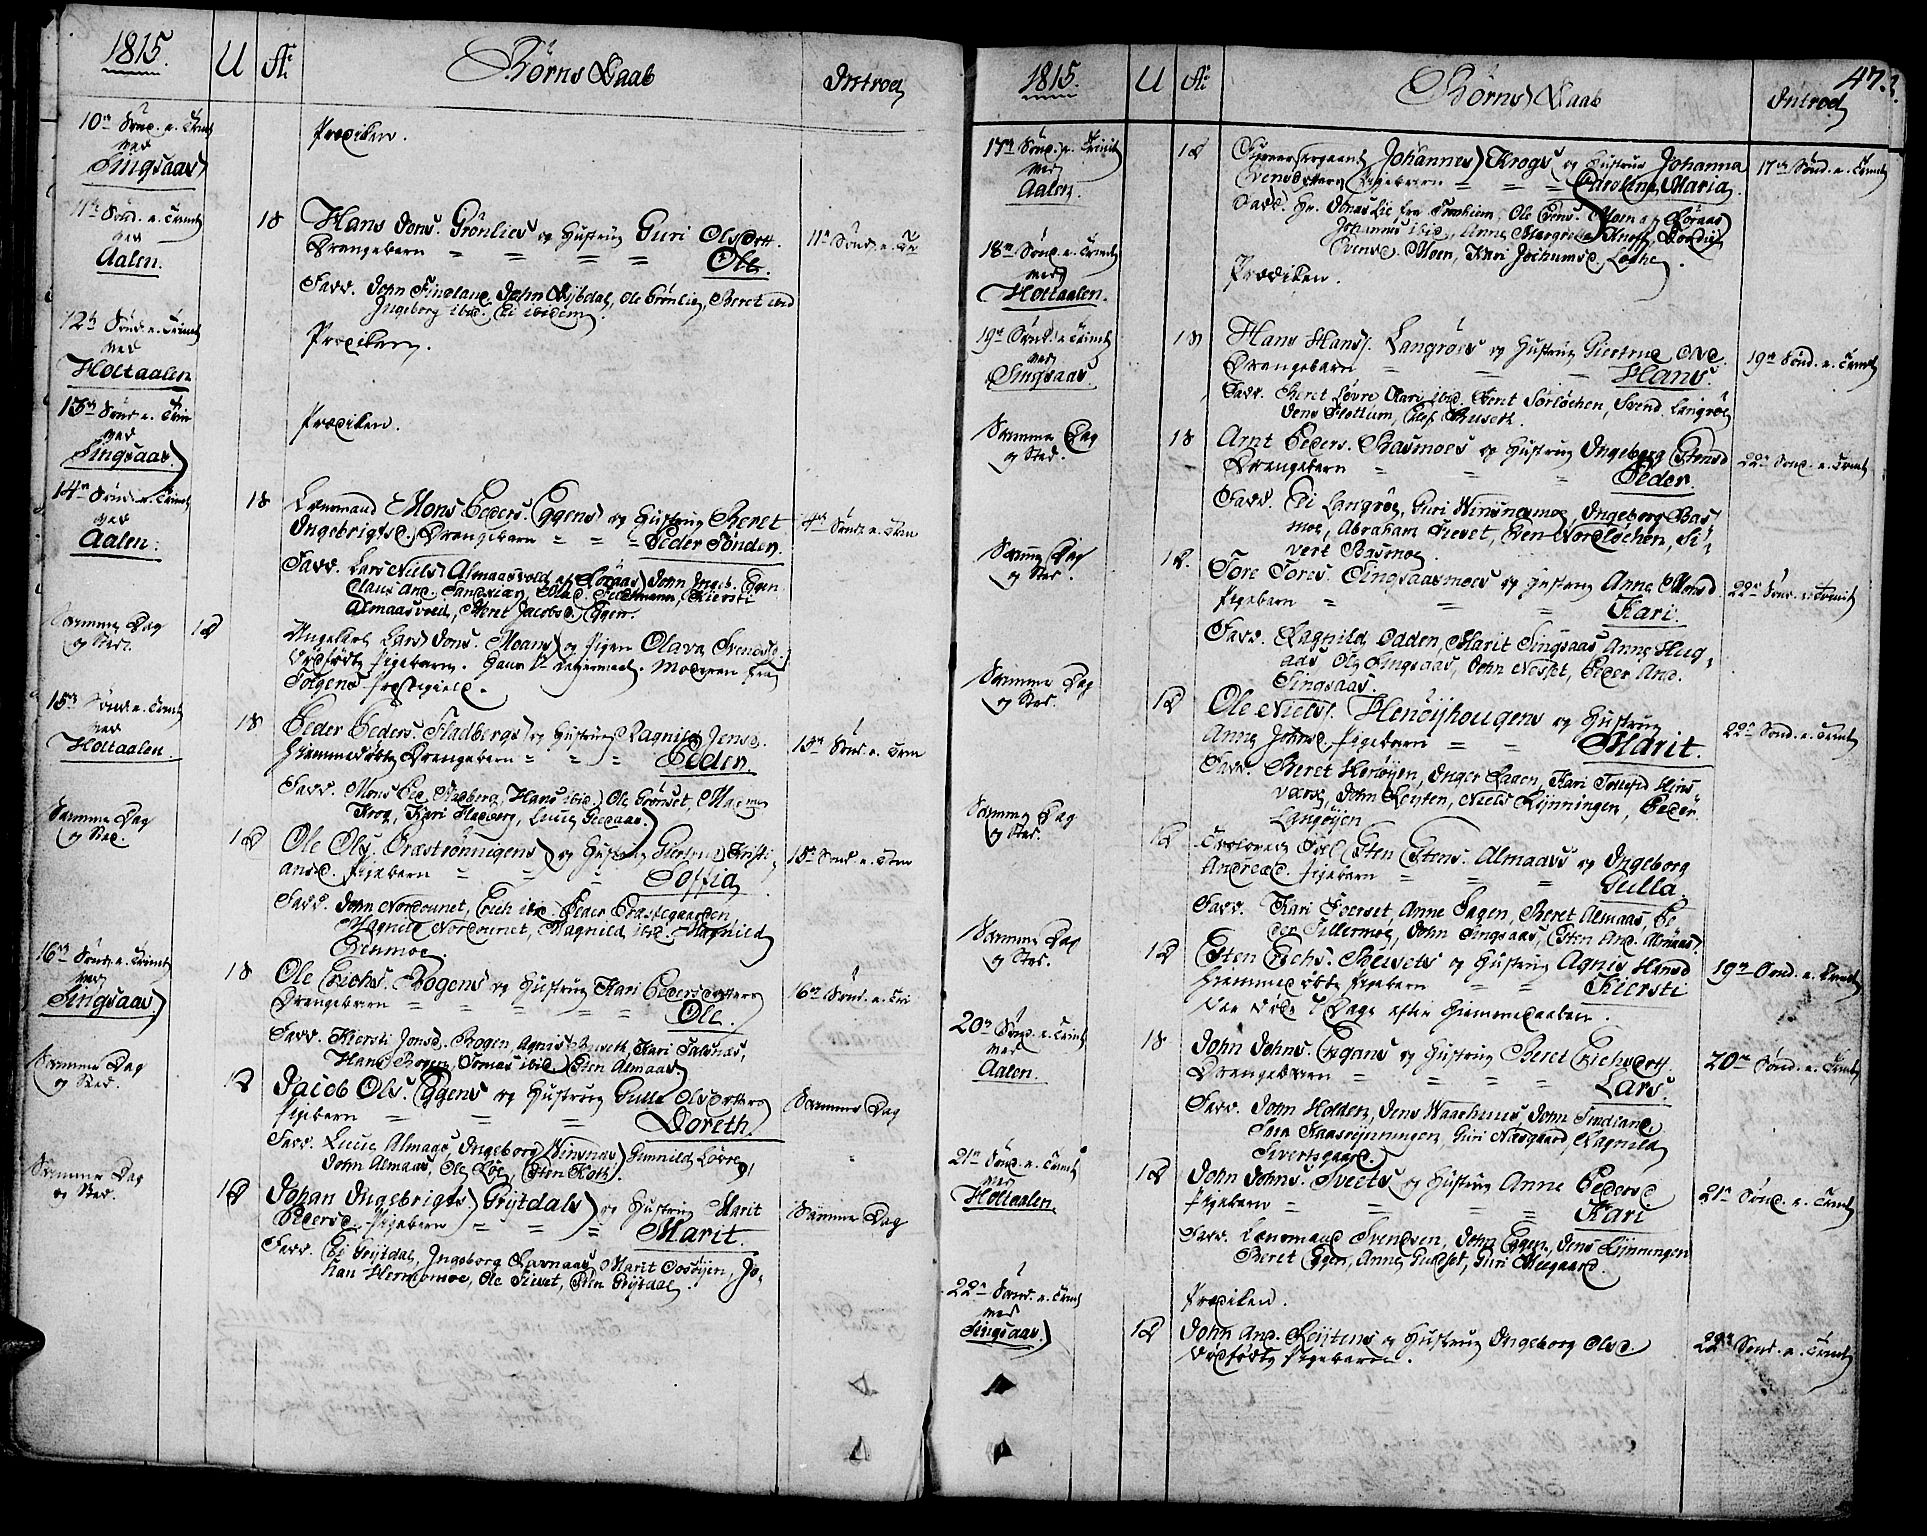 1815.
U
Æ:
Börns Daab
Introd
10de Sönd. e. Trinit
ved
Singsaas
Prædiken.
11te Sönd. e. Trinit
ved
Aalen.
18
Hans Jons. Grönlies og Hustrue Guri Olsdott.
Drengebarn Ole.
11te Sönd. e. Tr
Fadd. John Finland, John Bijdal, Ole Grönlie, Beret ibid
Ingeborg ibid. Ei ibidem.
12te Sönd. e. Trinit
ved
Holtaalen
Prædiken.
13de Sönd. e. Trin
ved
Singsaas
Prædiken.
14de Sönd. e. Trinit
ved
Aalen.
18
Lænsmand Mons Peders. Eggens og Hustrue Beret
Ingebrigtsd. Drengebarn Peder Tönder.
14de Sönd. e. Trin
Fadd. Lars Niels. Almaasvold af Röraas, John Ingeb. Eggen
Claus And. Sandkiær, Mad. Feldmann, Kiersti
Almaasvold, Beret Jacobsd. Eggen.
Samme Dag
og Sted.
12
Ungekarl Lars Jons. Moans og Pigen Olava Svendsd.
Dödfödt Pigebarn. Hans 1ste Leiermaal. Moderen fra
Tolgens Præstegield.
15de Sönd. e. Trinit
ved
Holtaalen
18
Peder Peders. Hadbergs og Hustrue Ragnild Jensd.
Hiemmedöbt Drengebarn Peder.
15de Sönd. e. Trin
Fadd. Mons Ped. Hadberg, Hans ibid. Ole Grönset, Magnus
Krog, Kari Hadberg, Lucie Gredaas.
Samme Dag
og Sted.
12
Ole Ols. Græsrönnigens og Hustrue Giertrud Kristi-
ansd. Pigebarn Soffia
15de Sönd. e. Trin
Fadd. John Nordaunet, Erich ibid. Peder Præstegaarden,
Magnild Nordaunet, Magnild ibid. Magnild
Grinmoe.
16de Sönd. e. Trinit
ved
Singsaas
18
Ole Erichs. Bogens og Hustrue Kari Pedersdatter
Drengebarn Ole.
16de Sönd. e. Tri
Fadd. Kiersti Jonsd. Bogen, Agnis Buseth, Kari Talsnæs,
Hans Bogen, Tomas ibid. Esten Almaas.
Samme Dag
og Sted.
12
Jacob Ols. Eggens og Hustrue Gulla Olsdatter
Pigebarn Doreth.
Samme Dag
Fadd. Lucie Almaas, Ingeborg Winsnas, Gunnild Lövre,
John Almaas, Ole Löe, Esten Kath.
Samme Dag
og Sted.
12
Johan Ingebrigts. Grijtdals og Hustrue Marit
Pedersd. Pigebarn Marit.
Samme Dag
Fadd. Ei Grijtdal, Ingeborg Ravnaas, Marit Oosöijen, Jo-
han Hermomoe, Ole Sievet, Sten Grijtdal.
1815.
U
Æ:
Börns Daab
47.
Introd
17de Sönd. e. Trinit
ved
Aalen.
12
Johannes Krogs og Hustrue Johanna
Svensdatters Pigebarn Carolina Maria.
17de Sönd. e. Trinit
Fadd. Hr. Jonas Lie fra Tronhiem, Ole Svens. Moen af Röraas
Johannes ibid, Anne Margrethe Knoff, Gordie
Svensd. Moen, Kari Jochumsd. Lothe.
18de Sönd. e. Trinit
ved
Holtaalen.
Prædiken.
19de Sönd. e. Trinit
ved
Singsaas
18
Hans Hans. Langröes og Hustrue Giertrud Olsd.
Drengebarn Hans.
19de Sönd. e. Trinit
Fadd. Beret Lövre, Kari ibid. Bent Sörlöchen, Svend Langröe,
Jens Flottum, Elef Buseth.
Samme Dag
og Sted.
18
Arnt Peders. Basmoes og Hustrue Ingeborg Estensd
Drengebarn Peder.
22de Sönd. e. Trinit
Fadd. Ei Langröe, Guri Winsnesmoe, Ingeborg Bas-
moe, Abraham Sievet, Even Nordlöchen, Si-
vert Basmoe.
Samme Dag
og Sted.
12.
Tore Tores. Singsaasmoes og Hustrue Anne Monsd
Pigebarn Kari.
22de Sönd. e. Trinit
Fadd. Ragnild Odden, Marit Singsaas, Anne Hug-
aas, Ole Singsaas, John Næsset, Peder And.
Singsaas.
Samme Dag
og Sted.
12
Ole Niels. Henöijhougens og Hustrue
Anne Johnsd. Pigebarn Marit.
22de Sönd. e. Trinit
Fadd. Beret Heröijen, Inger Laaen, Kari Tosefsd Hins-
værk, John Reijten, Niels Rijnningen, Peder
Langöijen
Samme Dag
og Sted.
12
Esten Estens. Almaas og Ingeborg
Andreasd. Pigebarn Gulla.
Fadd. Kari Foerset, Anne Fagen, Beret Almaas, Pe-
der Sillermoe, John Singsaas, Esten And. Almaas.
Samme Dag
og Sted.
12
Esten Erichs. Busets og Hustrue Agnis Hansd
Hiemmedöbt Pigebarn Kiersti
19de Sönd. e. Trinit
Dage efter Hiemmedaaben.
20de Sönd. e. Trinit
ved
Aalen.
18
John Johns. Engans og Hustrue Beret Erichsdott.
Drengebarn Lars.
20de Sönd. e. Trinit
Fadd. John Holden, Jens Waarhuus, John Findland,
Sara Kaasrijnningen, Guri Næsgaard, Ragnild
Sivertsgaard.
21de Sönd. e. Trinit
ved
Holtaalen.
12
John Johns. Sveets og Hustrue Anne Pedersd
Pigebarn Kari
21de Sönd. e. Trinit
Fadd. Lænsmand Svendsen, John Eggen, Jens Rijnningen
Beret Eggen, Anne Gudset, Guri Ousgaard.
22de Sönd. e. Trinit
ved
Singsaas.
Prædiken.
12
John And. Reijtens og Hustrue Ingeborg Olsd.
Dödfödt Pigebarn.
22de Sönd. e. Trinit